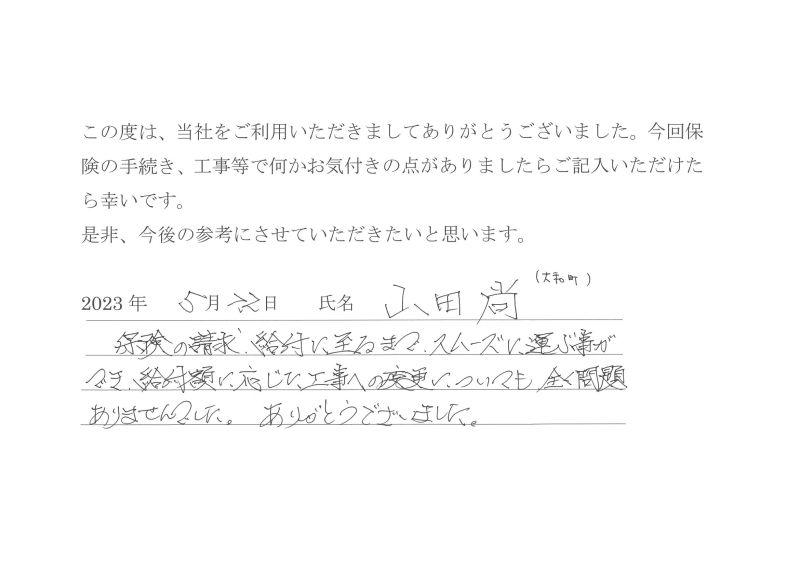 この度は、当社をご利用いただきましてありがとうございました。今回保
険の手続き、工事等で何かお気付きの点がありましたらご記入いただけた
ら幸いです。
是非、今後の参考にさせていただきたいと思います。
(大和町)
2023 年 5月 22日 氏名 山田 尚
保険の請求、給付に至るまで、スムーズに運ぶ事が
でき、給付額に応じた工事への変更についても 全く問題
ありませんでした。 ありがとうございました。